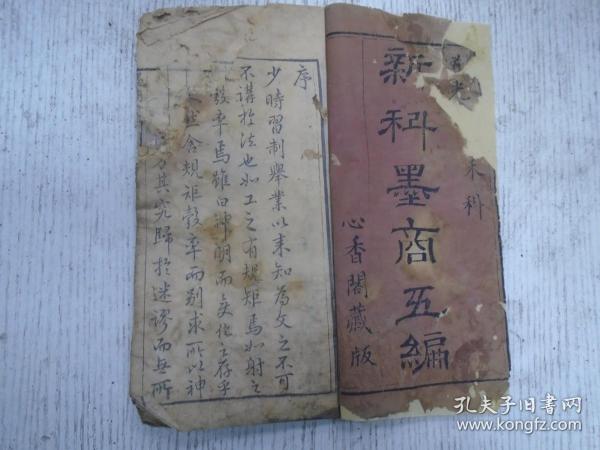 光
未科
新科墨商五編
心香閣藏版
序
少時習制舉業以来知為文之不可
不講於法也如工之有規矩焉如射之
彀率焉雖曰神明而變化之存乎
舍規矩彀率而别求所以神
其究歸於迷謬而無所
孔夫子旧书网
www.kongfz.com